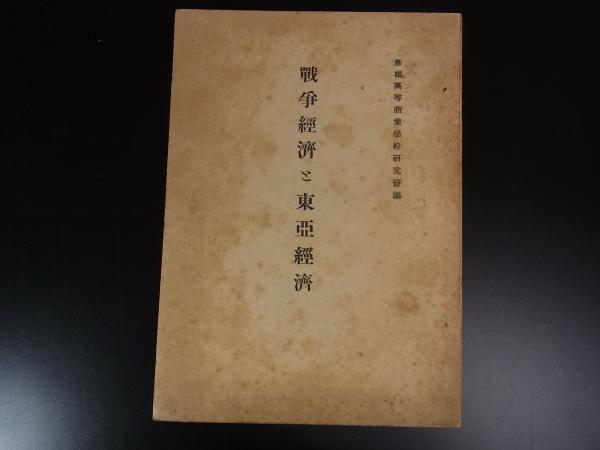 彥根高等商業學校硏究會編
戰爭經濟と東亞經濟